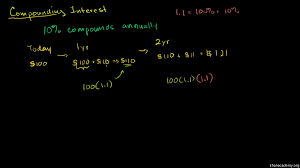 Compounding Interest
1.1 = 100% + 10%
10% compounds annually
Today 1yr 2yr
$100 → $100 + $10 = $110 → $110 + $11 = $121
100(1.1) 100(1.1)(1.1)
khanacademy.org